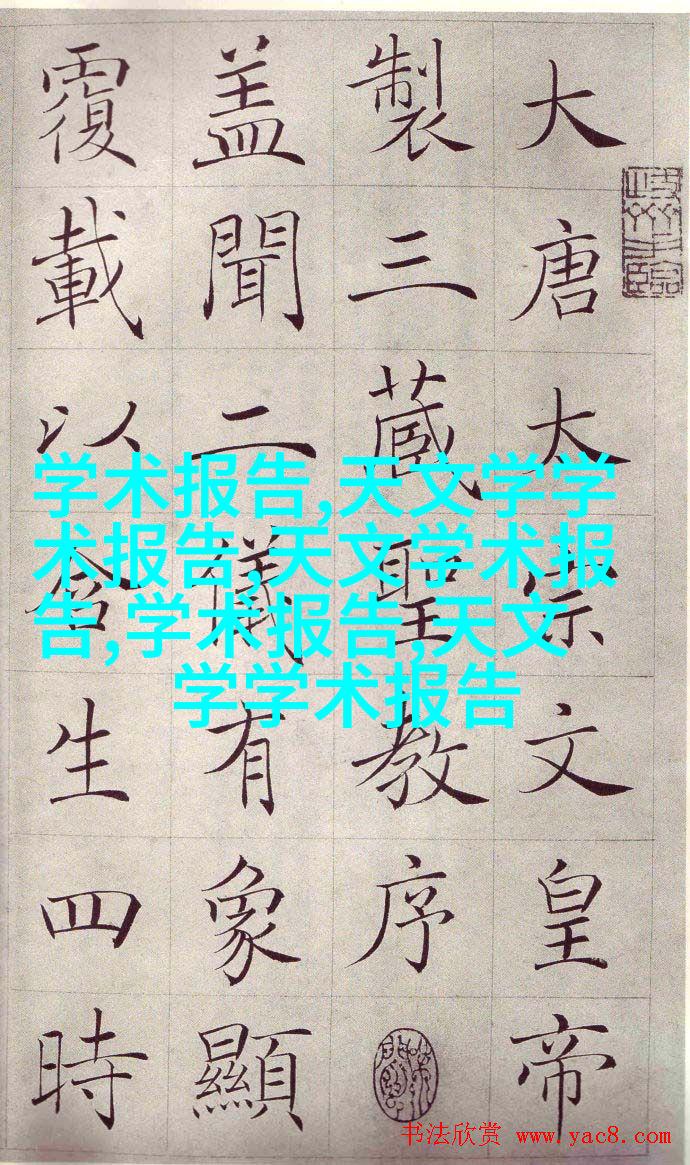 大唐太宗文皇帝
製三藏聖教序
盖聞二儀有象顯
覆載以含生四時
学术报告,天文学学
术报告,天文学术报
告,学术报告,天文
学学术报告
书法欣赏 www.yac8.com